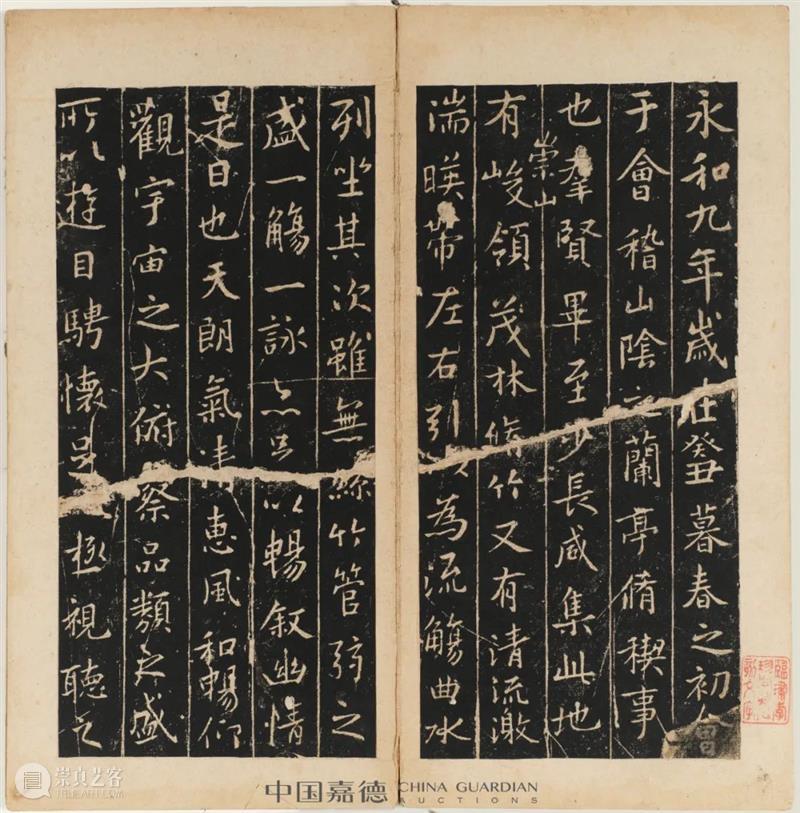 永和九年歲在癸丑暮春之初會
于會稽山陰之蘭亭脩稧事
也羣賢畢至少長咸集此地
有崇山峻領茂林脩竹又有清流激
湍暎帶左右引以為流觴曲水
列坐其次雖無絲竹管弦之
盛一觴一詠亦足以暢叙幽情
是日也天朗氣清惠風和暢仰
觀宇宙之大俯察品類之盛
所以遊目騁懷足極視聽之
崇真艺客
中国嘉德 CHINA GUARDIAN
AUCTIONS